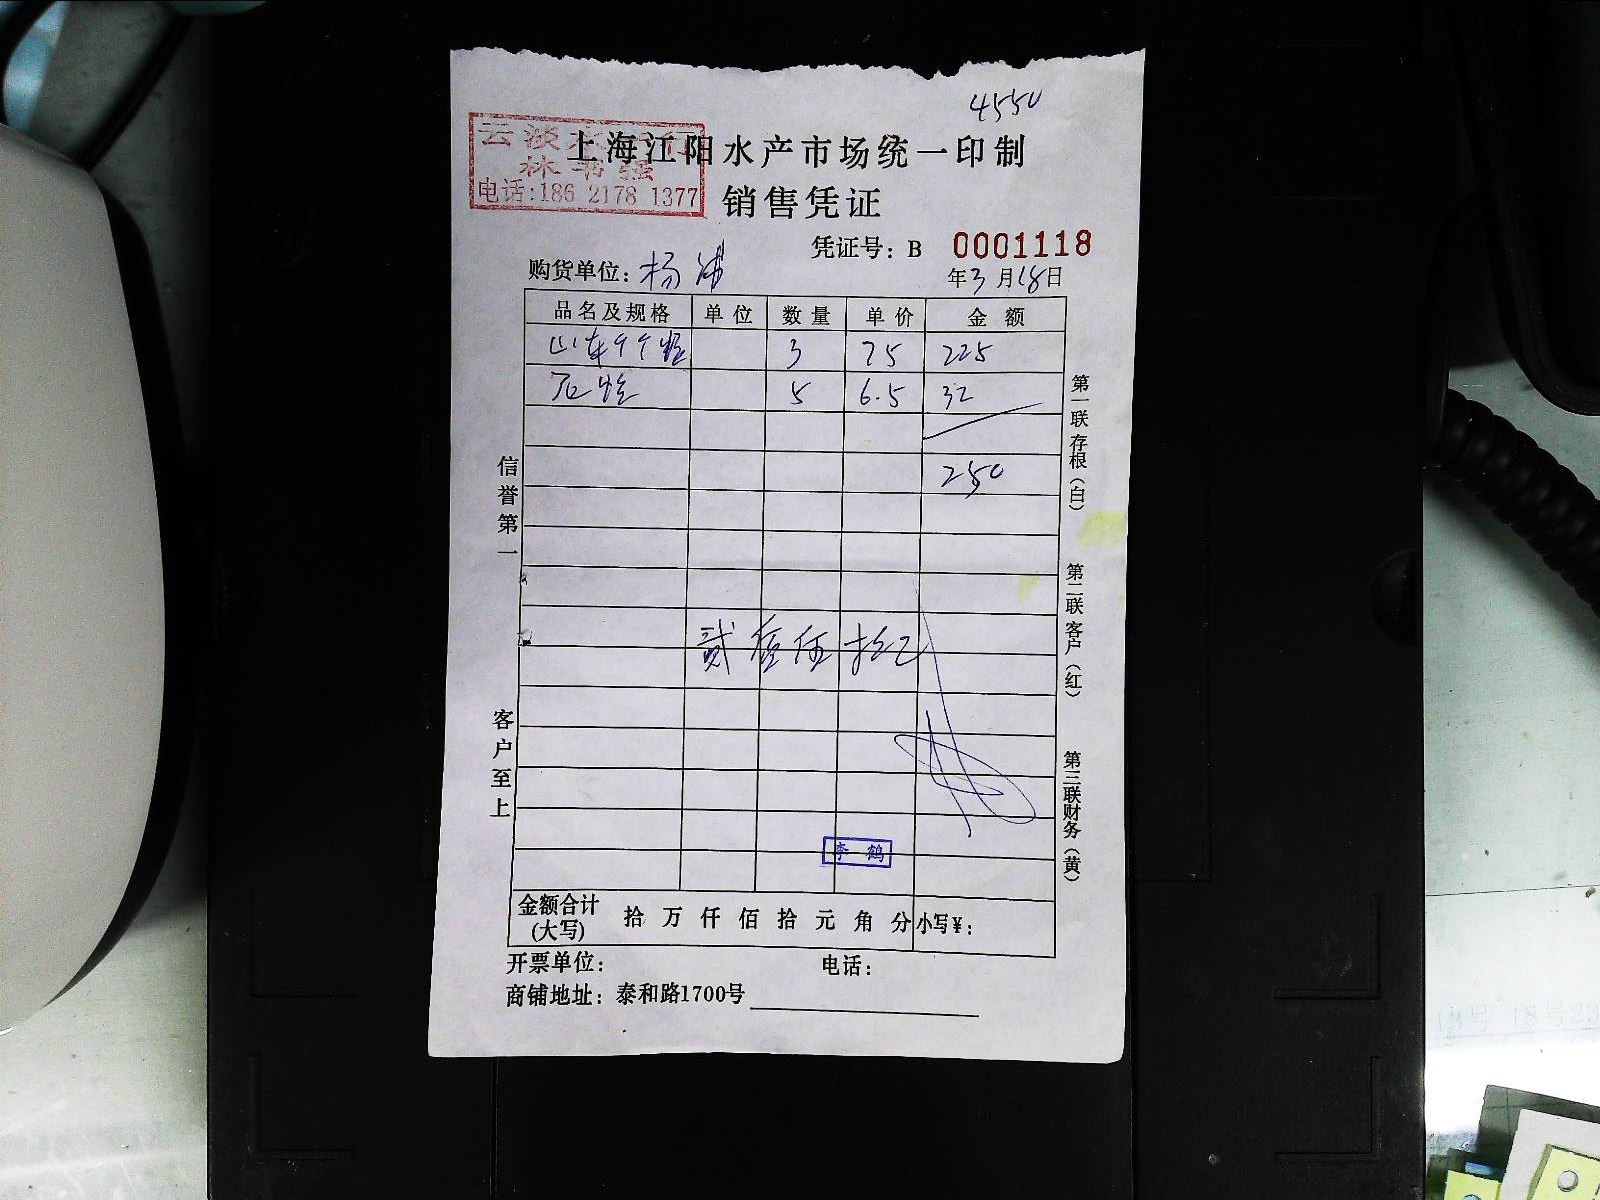 4550
云淡水
林书强
电话:186 2178 1377
上海江阳水产市场统一印制
销售凭证
凭证号: B 0001118
购货单位: 杨浦
年3月18日
品名及规格 单位 数量 单价 金额
山东 3 75 225
5 6.5 32
250
贰佰伍拾元
李鹤
金额合计(大写) 拾 万 仟 佰 拾 元 角 分 小写¥:
开票单位: 电话:
商铺地址: 泰和路1700号
信誉第一
客户至上
第一联存根(白)
第二联客户(红)
第三联财务(黄)
18号 18号23